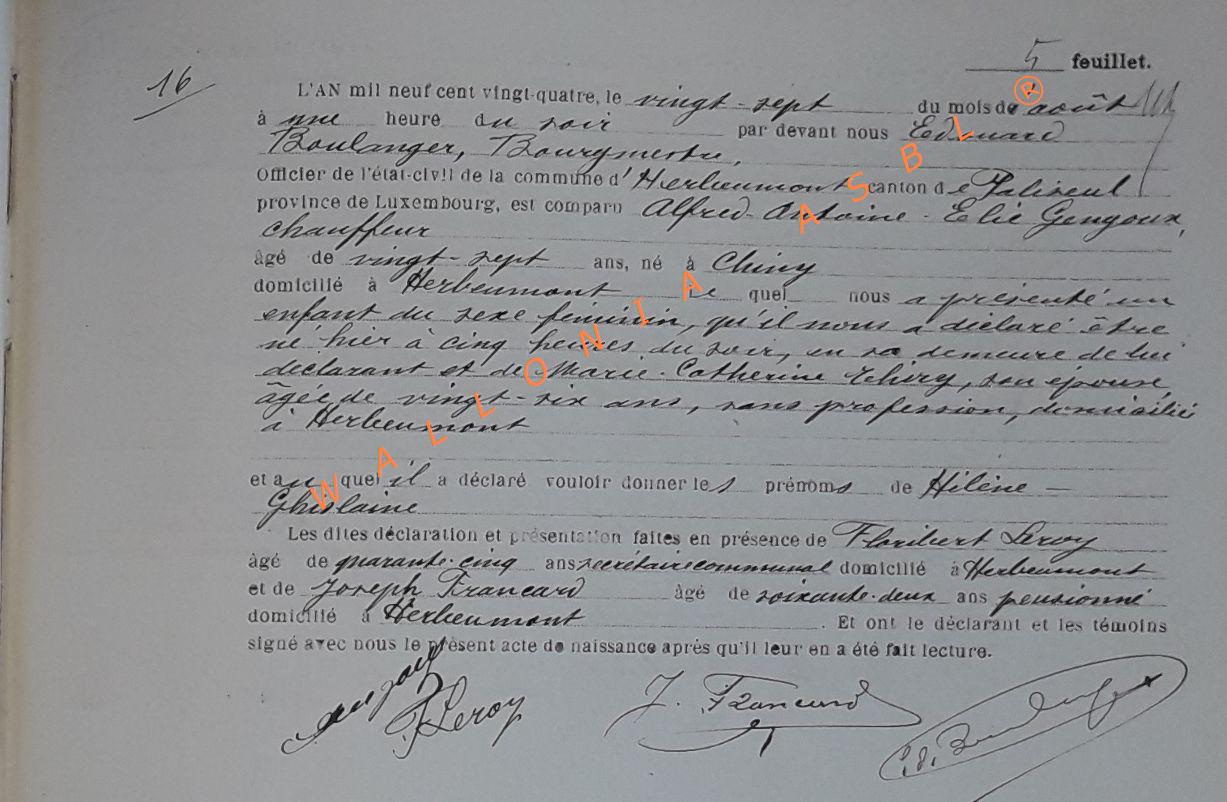 5 feuillet.
16
L'AN mil neuf cent vingt-quatre, le vingt-sept du mois de août
à une heure du soir par devant nous Edouard
Boulanger, Bourgmestre,
Officier de l'état-civil de la commune d'Herbeumont canton de Paliseul
province de Luxembourg, est comparu Alfred-Antoine-Elie Gengoux,
chauffeur
âgé de vingt-sept ans, né à Chiny
domicilié à Herbeumont le quel nous a présenté un
enfant du sexe féminin, qu'il nous a déclaré être
né hier à cinq heures du soir, en sa demeure de lui
déclarant et de Marie-Catherine Thiry, son épouse,
âgée de vingt-six ans, sans profession, domiciliée
à Herbeumont
et au quel il a déclaré vouloir donner les prénoms de Hélène-
Ghislaine
Les dites déclaration et présentation faites en présence de Floribert Leroy
âgé de quarante-cinq ans secrétaire communal domicilié à Herbeumont
et de Joseph Francard âgé de soixante-deux ans pensionné
domicilié à Herbeumont. Et ont le déclarant et les témoins
signé avec nous le présent acte de naissance après qu'il leur en a été fait lecture.
F. Leroy J. Francard
WALLONIA ASBL ®